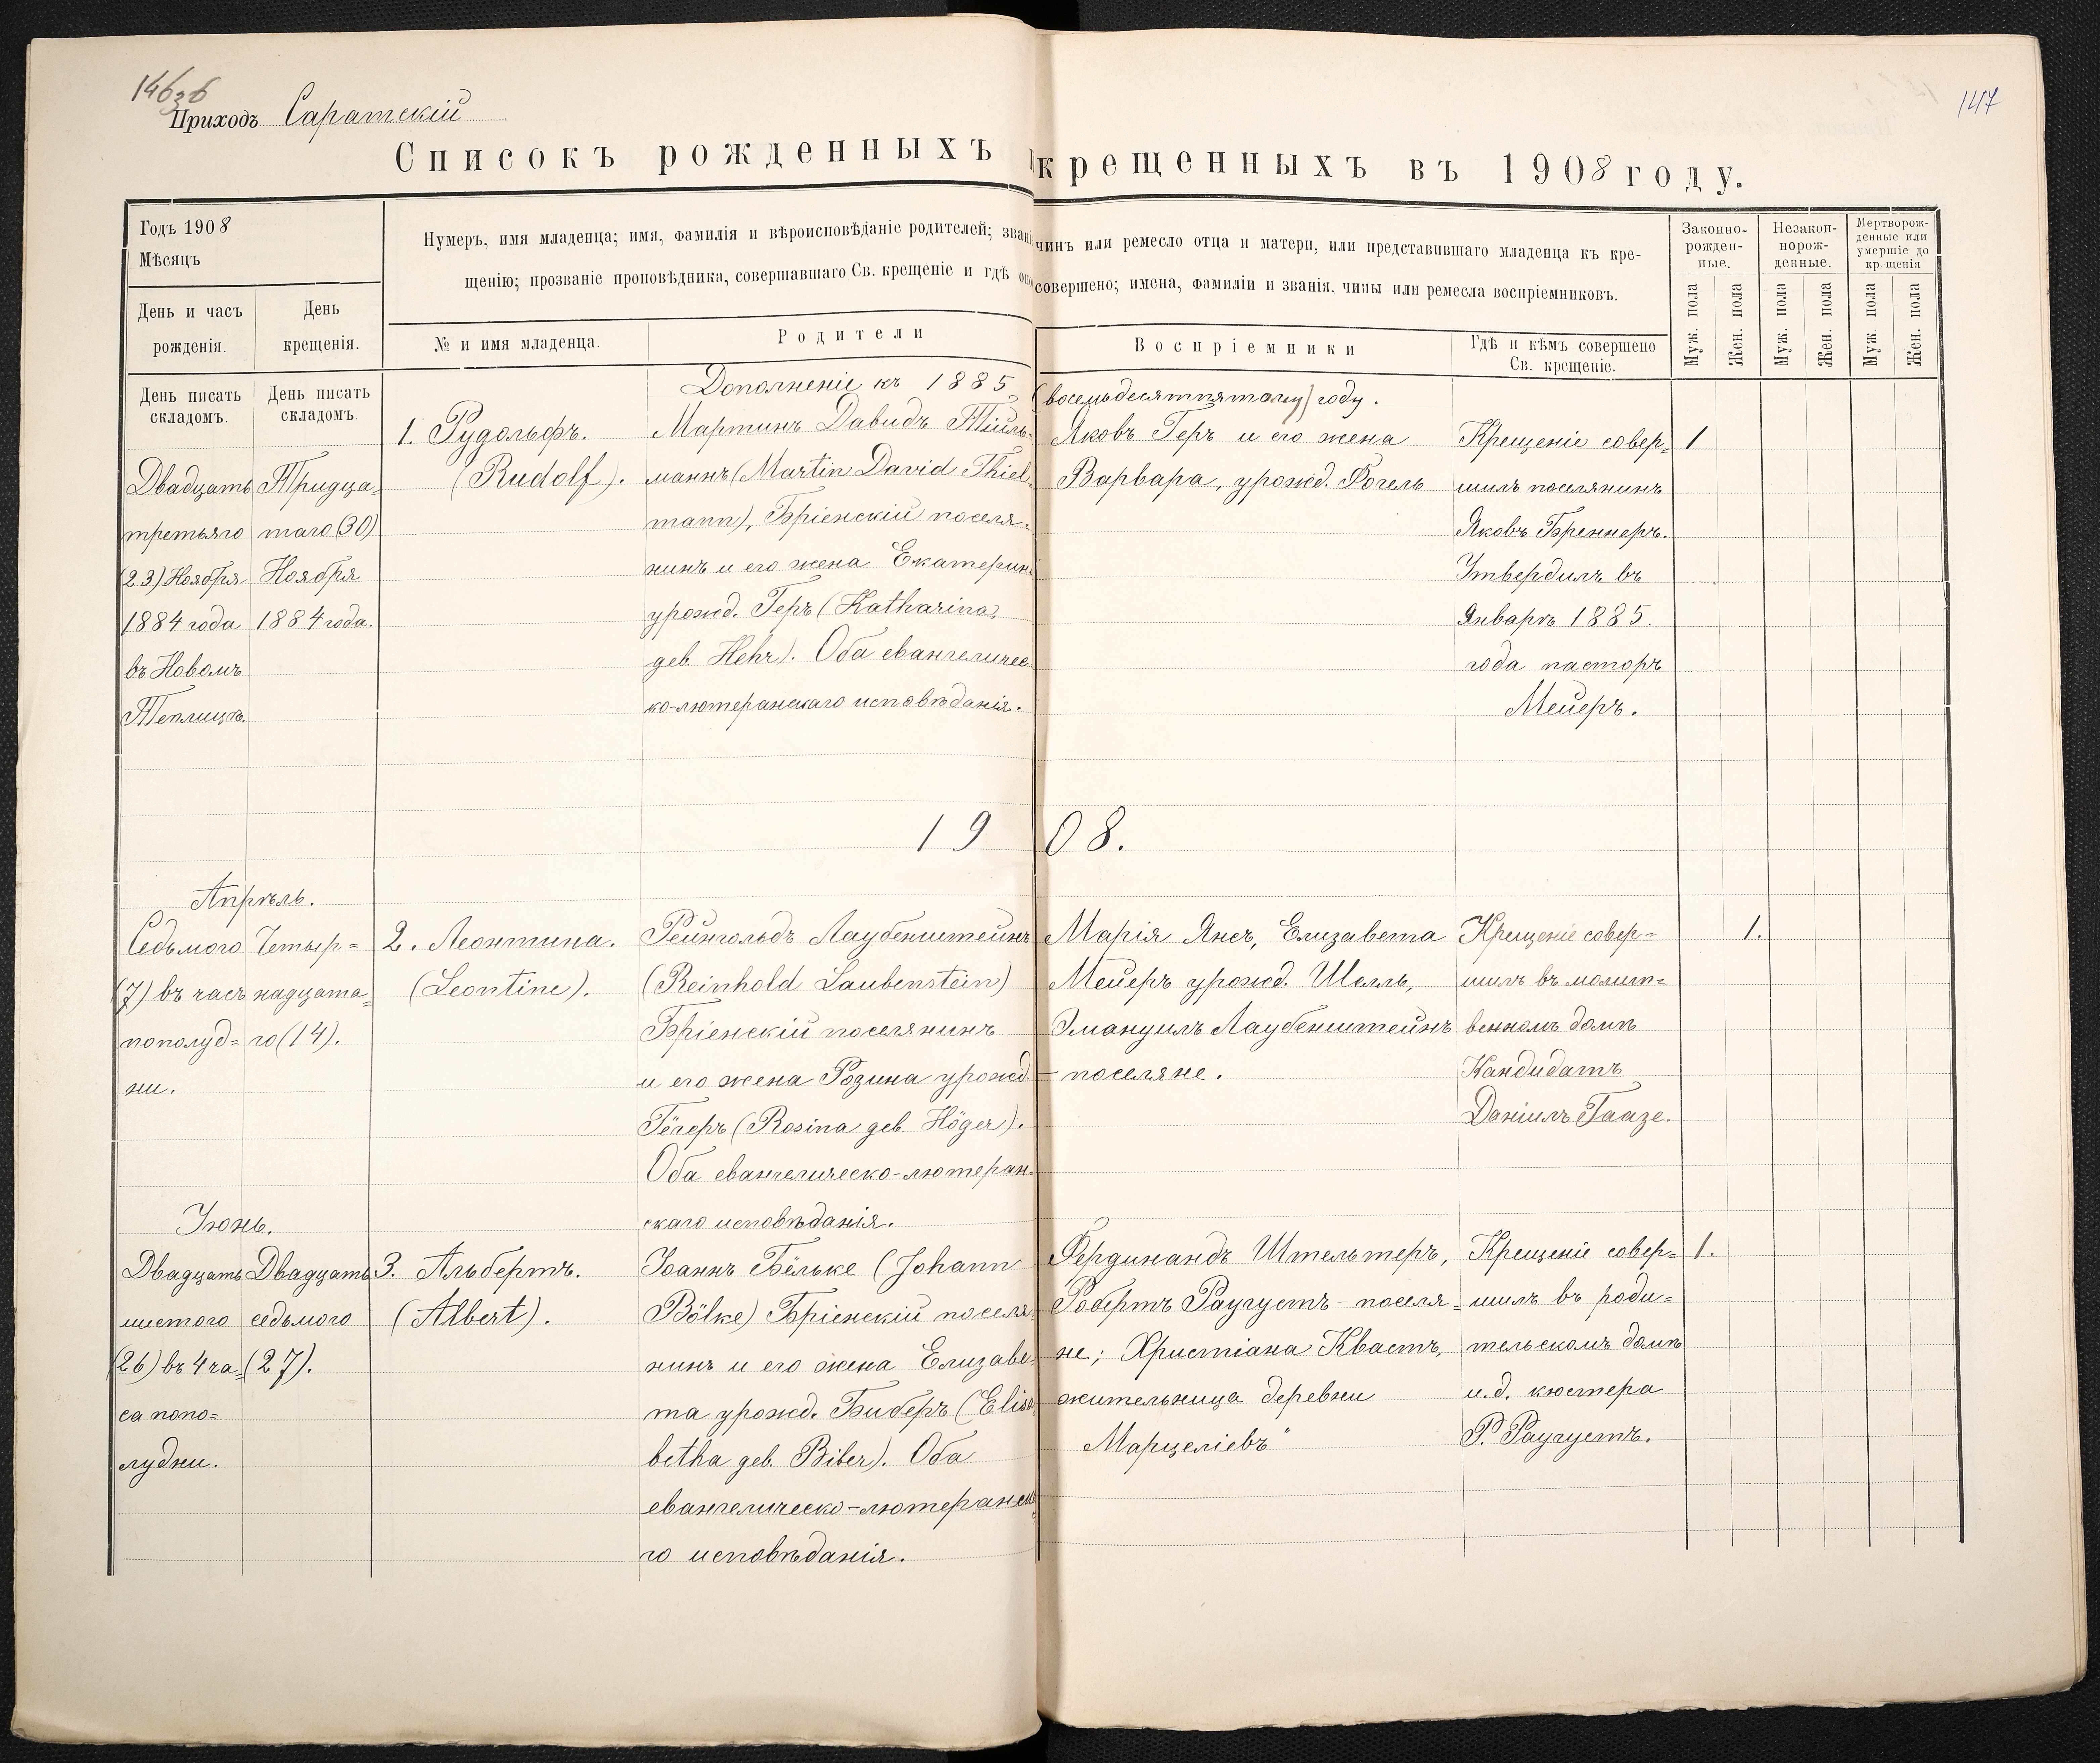 146зб
147
Приходъ Саратскій
Списокъ рожденныхъ крещенныхъ въ 1908 году.
Годъ 1908
Мѣсяцъ
День и часъ рожденія.
День крещенія.
Нумеръ, имя младенца; имя, фамилія и вѣроисповѣданіе родителей; званіе чинъ или ремесло отца и матери, или представившаго младенца къ кре-
щенію; прозваніе проповѣдника, совершавшаго Св. крещеніе и гдѣ оно совершено; имена, фамиліи и званія, чины или ремесла воспріемниковъ.
№ и имя младенца.
Родители
Воспріемники
Гдѣ и кѣмъ совершено
Св. крещеніе.
Законно-
рожден-
ные.
Незакон-
норож-
денные.
Мертворож-
денные или
умершіе до
крещенія
Муж. пола
Жен. пола
Муж. пола
Жен. пола
Муж. пола
Жен. пола
День писать
складомъ.
День писать
складомъ.
Дополненіе къ 1885 (восемьдесятпятому) году.
Двадцать
третьяго
(23) Ноября
1884 года
въ Новомъ
Теплицѣ.
Тридца-
таго (30)
Ноября
1884 года.
1. Рудольфъ.
(Rudolf).
Мартинъ Давидъ Тіиль-
маннъ (Martin David Thiel-
mann), Бріенскій поселя-
нинъ и его жена Екатерина
урожд. Геръ (Katharina
геб. Hehr). Оба евангеличес-
ко-лютеранскаго исповѣданія.
Яковъ Геръ и его жена
Варвара, урожд. Фогель
Крещеніе совер-
шилъ поселянинъ
Яковъ Бреннеръ.
Утвердилъ въ
Январѣ 1885.
года пасторъ
Мейеръ.
1
1908.
Апрѣль.
Седьмого
(7) въ часъ
пополуд=
ни.
Четыр=
надцата=
го (14).
2. Леонтина.
(Leontine).
Рейнгольдъ Лаубенштейнъ
(Reinhold Laubenstein)
Бріенскій поселянинъ
и его жена Розина урожд.
Гёгеръ (Rosina геб. Höger).
Оба евангелическо-лютеран-
скаго исповѣданія.
Марія Янсъ, Елизавета
Мейеръ урожд. Шелль,
Эмануилъ Лаубенштейнъ
– поселяне.
Крещеніе совер=
шилъ въ молит=
венномъ домѣ
Кандидатъ
Даніилъ Гаазе.
1.
Іюнь.
Двадцать
шестого
(26) въ 4 ча=
са попо=
лудни.
Двадцать
седьмого
(27).
3. Альбертъ.
(Albert).
Іоаннъ Бёльке (Johann
Bölke) Бріенскій поселя-
нинъ и его жена Елизаве-
та урожд. Биберъ (Elisa-
betha геб. Biber). Оба
евангелическо-лютеранска-
го исповѣданія.
Фердинандъ Штельтеръ,
Робертъ Раугустъ – поселя=
не; Христіана Квастъ,
жительница деревни
„Марцеліевъ“
Крещеніе совер=
шилъ въ роди=
тельскомъ домѣ
и.д. кюстера
Р. Раугустъ.
1.